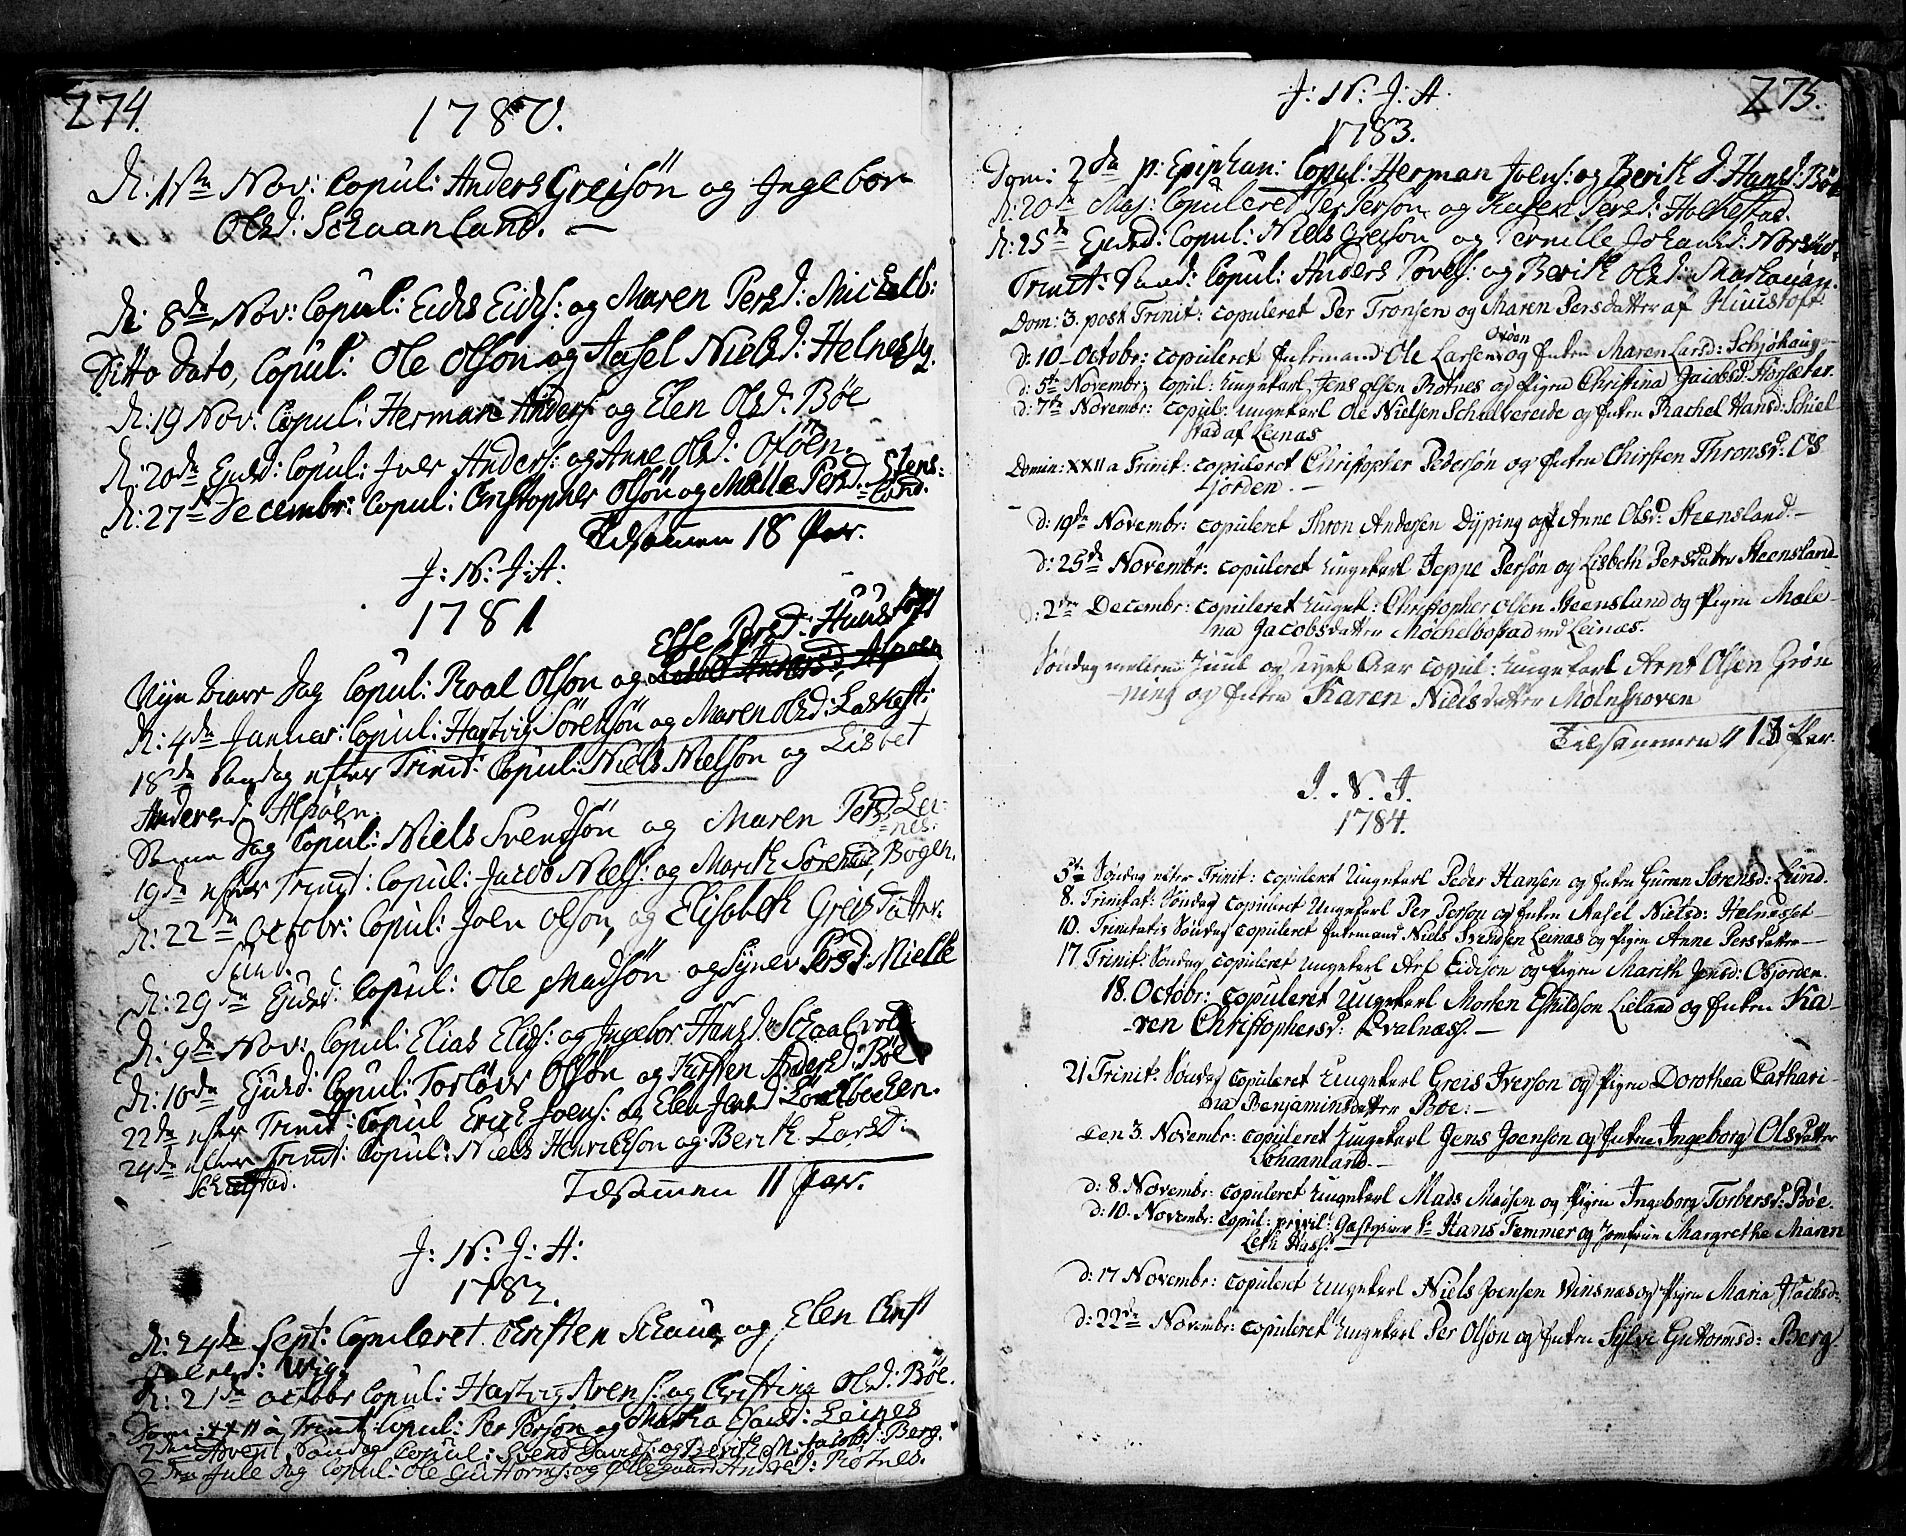 274.
1780.
D: 1ste Nov: Copul: Anders Greisön og Ingebor
Olsd: Schaanland. —
D: 8de Nov: Copul: Eids: og Maren Persd: Michelb:
Ditto Dato, Copul: Ole Olson og Assel Nielsd: Helness
D: 19 Nov: Copul: Herman Anders: og Elen Olsd: Böe
D: 20de Ejusd: Copul: Iver Anders: og Anne Olsd: Oxöen.
D: 27de Decembr: Copul: Christopher Olsön og Malle Persd. Stens-
=land.
Tilsammen 18 Par.
J: N: J: A:
1781
Else Persd: Huustoft
Nyt Aars Dag Copul: Roal Olson og
D: 4de Januar: Copul: Hartvig Sörensön og Maren Olsd:
18de Søndag efter Trinit: Copul: Niels Nielson og Lisbet
Andersd. Alpöen.
Samme Dag Copul: Niels Svendsön og Maren Persd: Lei-
=nes:
19de efter Trinit: Copul: Jacob Niels: og Marith Sörensd, Bogen.
D: 22de Octobr: Copul: Joen Olson og Elisabeth Greisdatter.
Sund.
D: 29de Ejusd: Copul: Ole Madsön og Synev Persd: Mielle
D: 9de Nov: Copul: Elias Elids: og Ingebor Hansd: Schaalvold
D: 10de Ejusd: Copul: Torlöv Olsön og Kirsten Andersd: Böe
22de efter Trinit: Copul Erich Joens: og Elen Lörelbechen.
24de efter Trinit: Copul: Niels Henrichson og Berith Larsd:
Schielstad.
Tilsammen 11 Par.
J: N: J: A:
1782.
D: 24de Sept: Copuleret Cristen Schaug og Elen Crist
Wig.
D: 21de Octobr Copul: Hartvig Ivers: og Cristina Olsd: Böe.
Dom: XXII a Trinit: Copul: Per Person og Martha Leines
2den Advent Søndag Copul: Svend Davids: og Berith M: Jacobsd: Berg.
2den Jule Dag Copul: Ole Guttorms: og Ollegaard Andersd: Røtnes.
275.
J: N: J: A.
1783.
Dom: 2da p: Epiphan: Copul: Herman Joens: og Berith d: Hansd: Böe
D: 20de Maj: Copuleret Per Person og Karen Persd: Hochestad.
D: 25de Ejusd: Copul: Niels Greison og Pernille Johansd:
Trinit: Sønd: Copul: Anders Povels: og Berith Olsd:
Dom: 3. post Trinit: copuleret Per Tronsen og Maren Persdatter af Huustoft
d: 10. Octobr: copuleret Enkemand Ole Larsen Oxöen og Enken Maren Larsd: Schjøhaug—
d: 5te Novembr: copul: Ungekarl Jens Olsen Røtnes og Pigen Christina Jacobsd: Horsæter.
d: 7de Novembr: copul: Ungekarl Ole Nielsen Schulvereide og Enken Rachel Hansd: Schiel-
stad af Leinas
Domin: XXII a Trinit: copuleret Christopher Pedersøn og Enken Chirsten Thronsd: Os-
fjorden. —
d: 19de Novembr: copuleret Thron Andersen Dyping og Anne Olsd: Steensland. —
d: 25de Novembr: copuleret Ungekarl Jeppe Persøn og Lisbeth Persdatter Steensland
d: 2den Decembr: copuleret Ungek: Christopher Olsen Steensland og Pigen Male-
na Jacobsdatter Møchelbostad ved Leinas.
Søndag mellem Juul og Nyt Aar copul: Ungekarl Arnt Olsen Grøn
-ning og Enken Karen Nielsdatter Molnshoven
Tilsammen 13 Par.
J. N. J.
1784.
5te Søndag efter Trinit: copuleret Ungekarl Peder Hansen og Enken Gurren Sørensd: Lund.
8. Trinitat: Søndag copuleret Ungekarl Per Person og Enken Aasel Nielsd: Helnesset—
10. Trinitatis Søndag copuleret Enkemand Niels Svendsen Leinas og Pigen Anne Persdatter—
17 Trinit: Søndag copuleret Ungekarl Arf Eidison og Pigen Marith Jonsd: Osfjorden.
18. Octobr: copuleret Ungekarl Morten Eskildson Lieland og Enken Ka-
-ren Christophersd: Qvalnæss. —
21 Trinit: Søndag copuleret Ungekarl Greis Iverson og Pigen Dorothea Cathari-
na Benjaminsdatter Bøe: —
Den 3. Novembr: copuleret Ungekarl Jens Joenson og Enken Ingeborg Olsdatter
Schaanland. —
d: 8. Novembr: copuleret Ungekarl Mads Madsen og Pigen Ingeborg Torbersd: Bøe.
d: 10. Novembr: copul: privil: Gastgiver Sr Hans Femmer og Jomfrue Margrethe Maren
Leth Hass: —
d: 17 Novembr: copuleret Ungekarl Niels Joensen Winsnas og Pigen Maria Isachsd:
d: 22de Novembr: copuleret Ungekarl Per Olson og Enken Sylve Guttormsd: Berg.